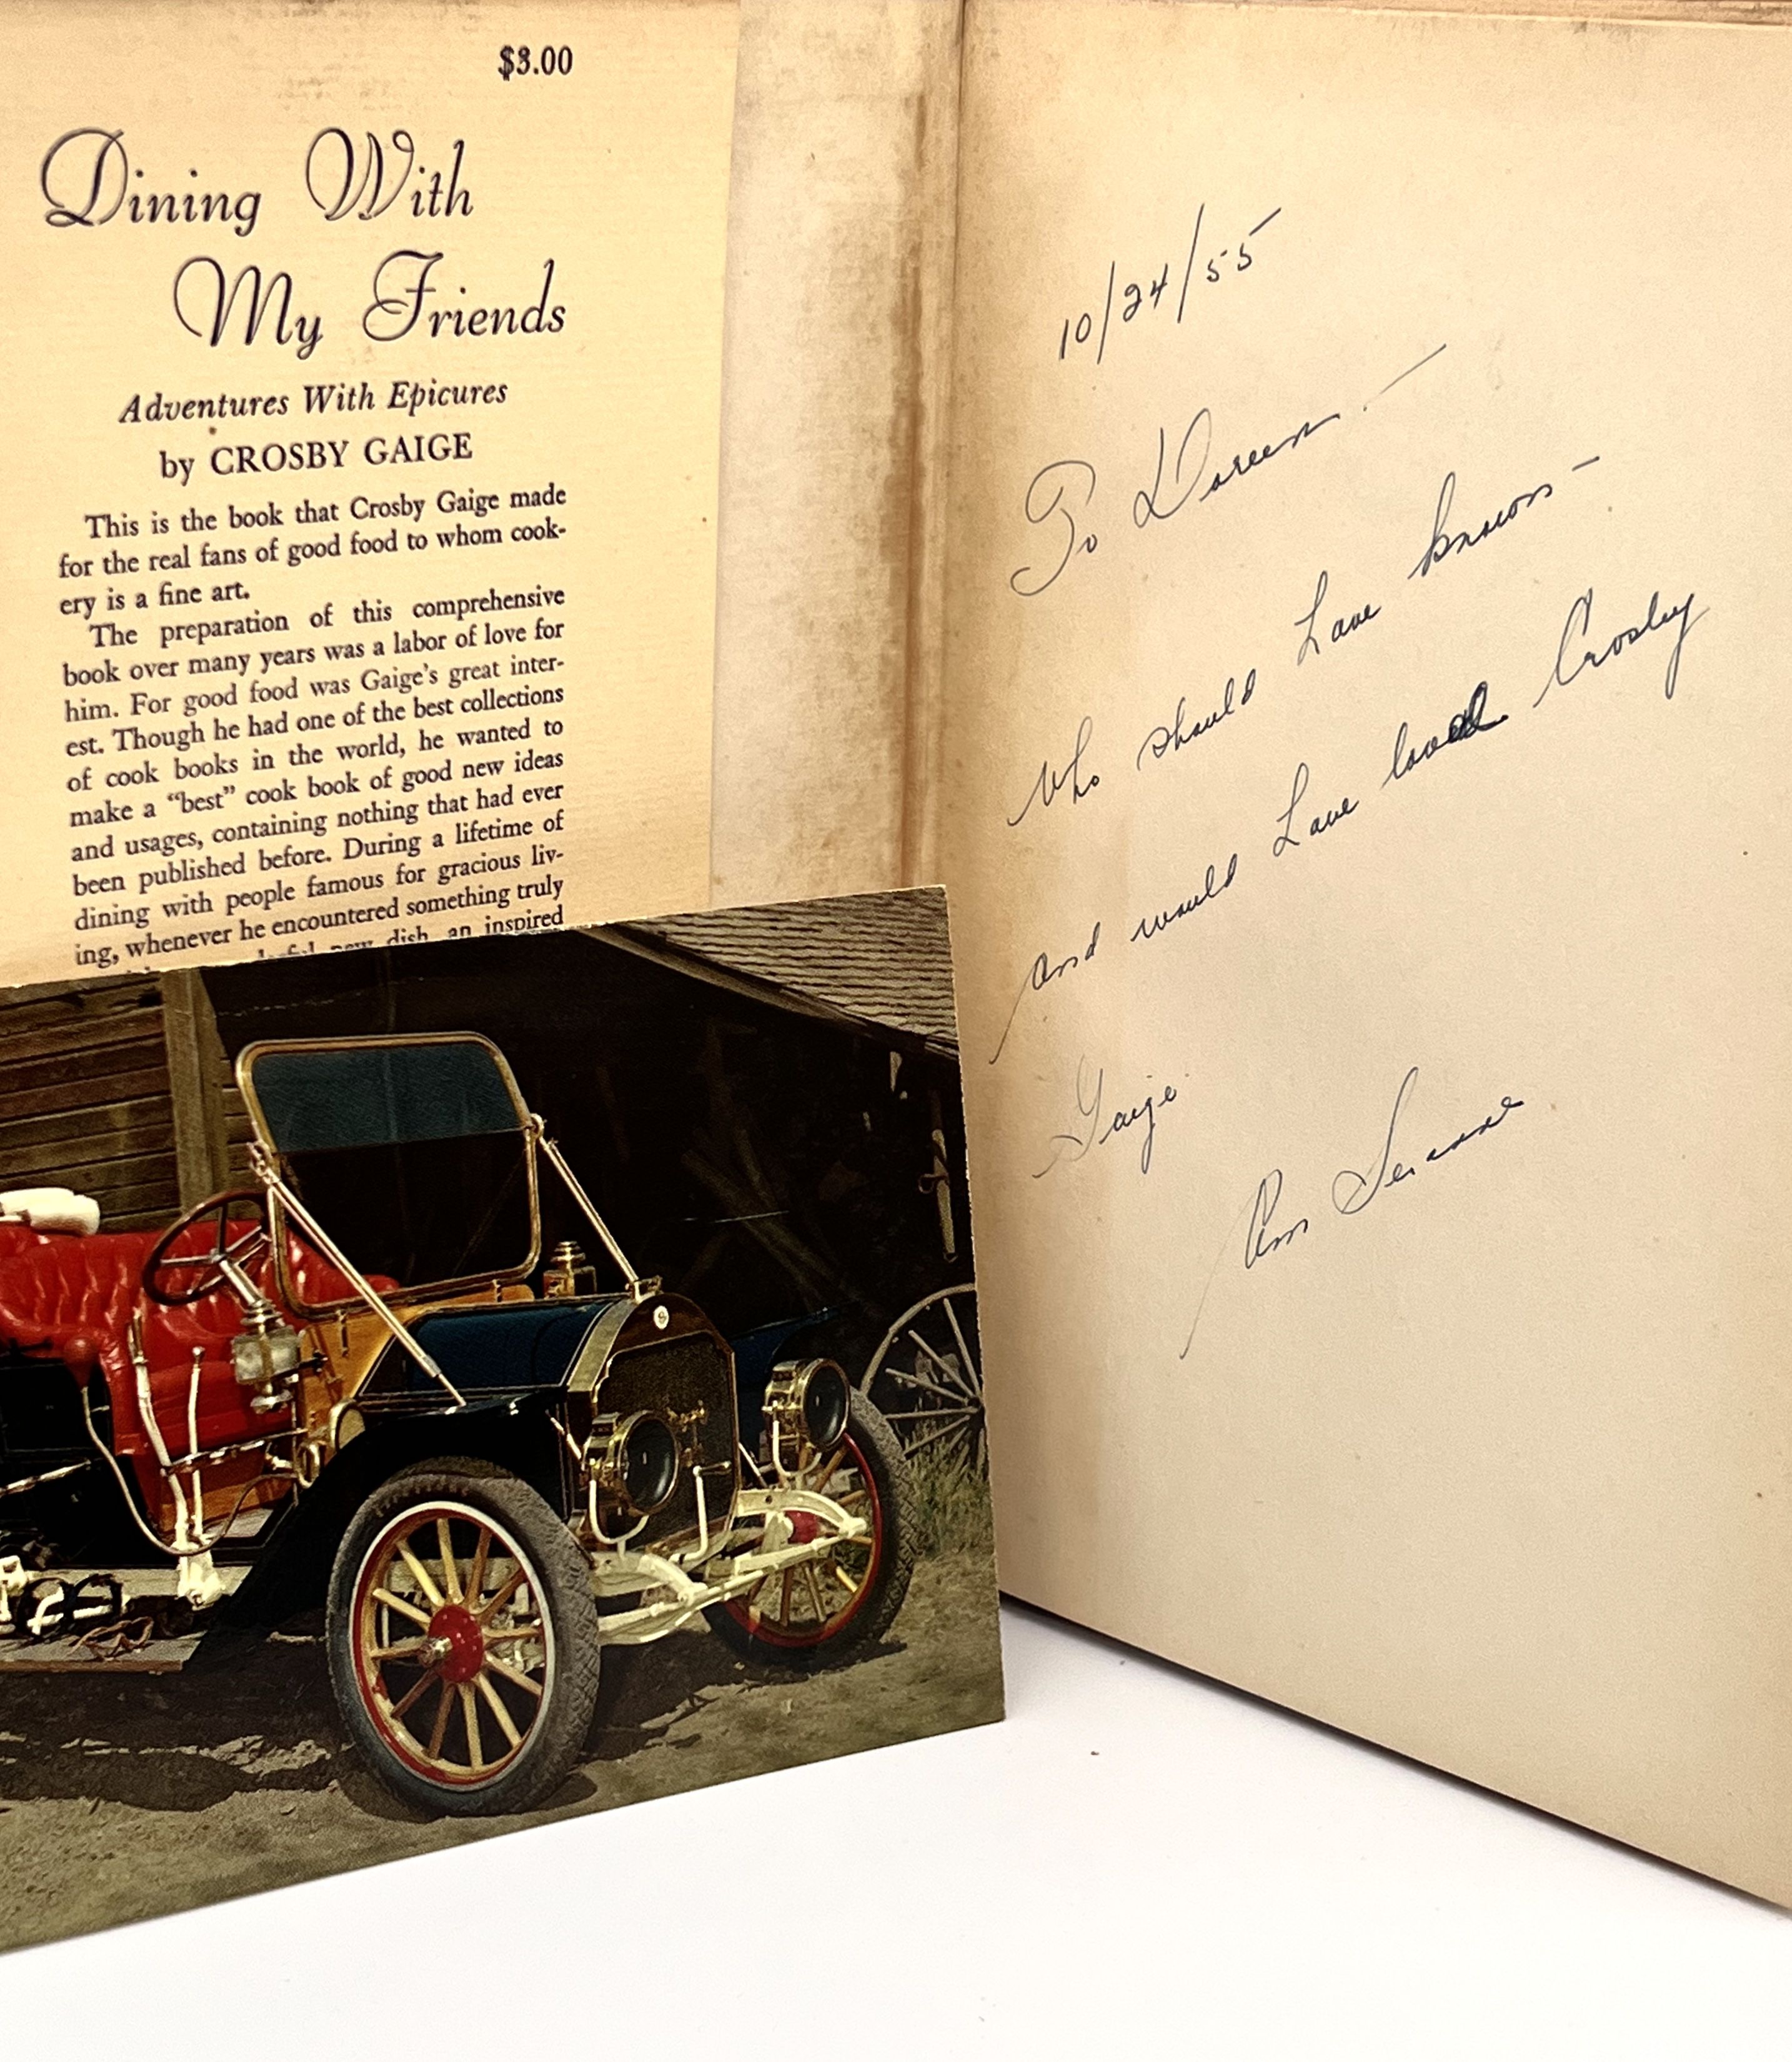 $3.00
Dining With
My Friends
Adventures With Epicures
by CROSBY GAIGE
This is the book that Crosby Gaige made
for the real fans of good food to whom cook-
ery is a fine art.
The preparation of this comprehensive
book over many years was a labor of love for
him. For good food was Gaige's great inter-
est. Though he had one of the best collections
of cook books in the world, he wanted to
make a “best” cook book of good new ideas
and usages, containing nothing that had ever
been published before. During a lifetime of
dining with people famous for gracious liv-
ing, whenever he encountered something truly
new dish, an inspired
10/24/55
To Doreen —
Who should have known —
and would have loved Crosby
Gaige
Ann Seranne